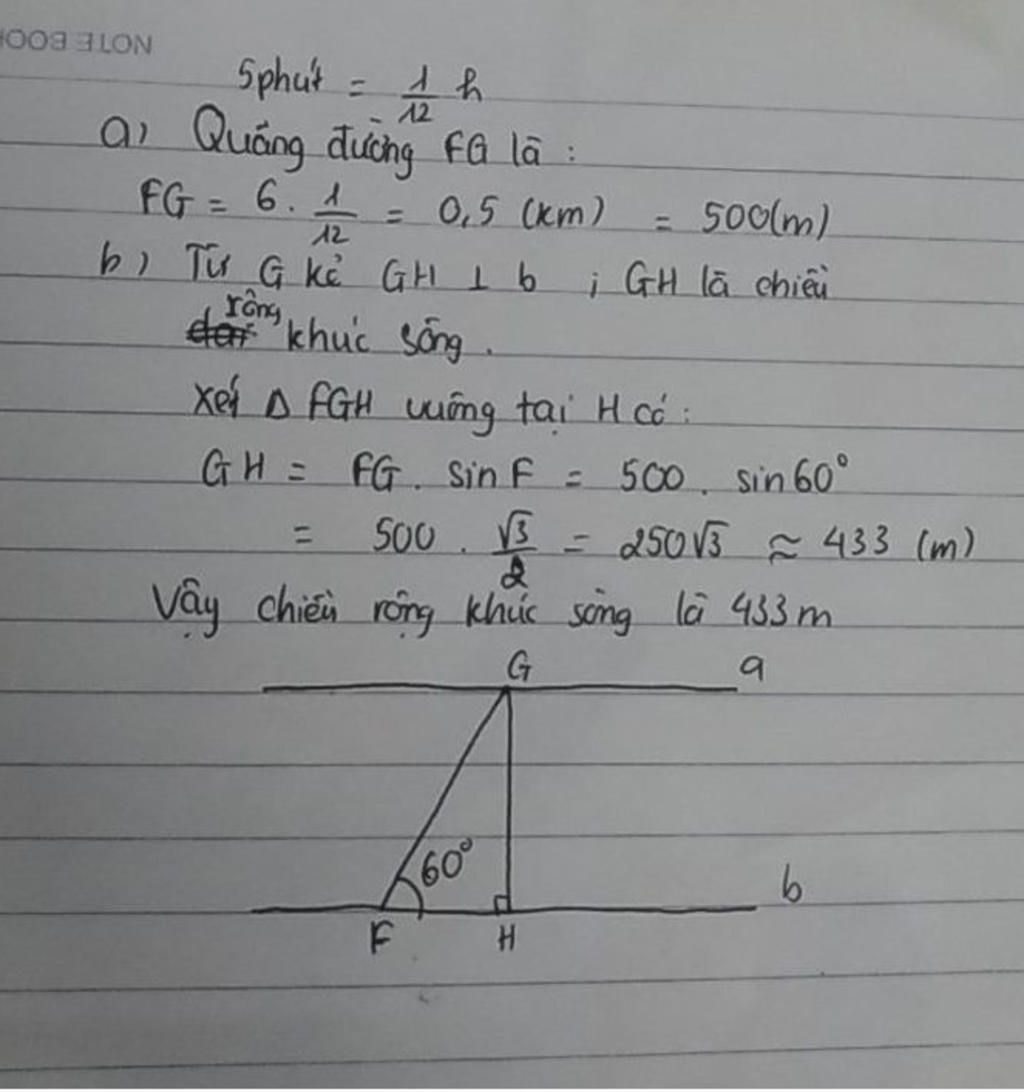 NOTE BOOK
5phút = 1/12 h
a) Quãng đường FG là :
FG = 6 . 1/12 = 0,5 (km) = 500(m)
b) Từ G kẻ GH ⊥ b ; GH là chiều
rộng khúc sông .
Xét Δ FGH vuông tại H có :
GH = FG . sin F = 500 . sin 60°
= 500 . √3/2 = 250√3 ≈ 433 (m)
Vậy chiều rộng khúc sông là 433 m
G a
60°
b
F H